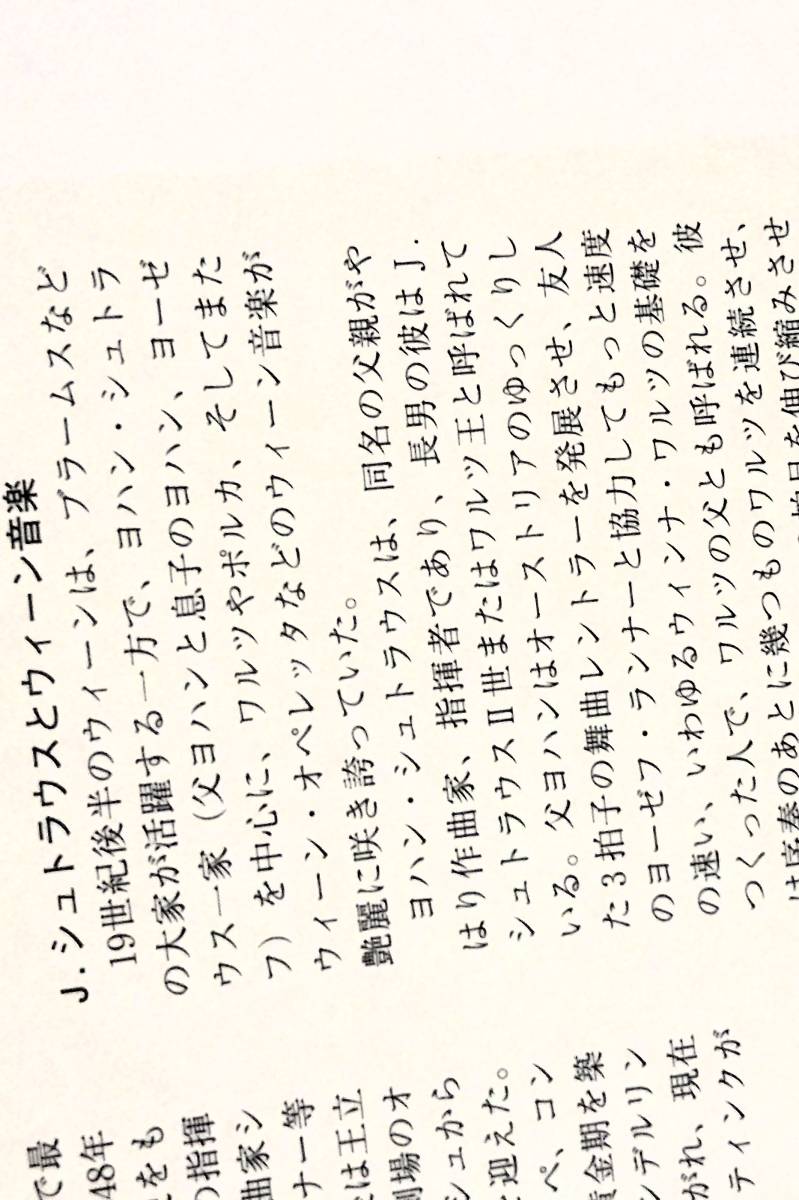 J.シュトラウスとウィーン音楽
19世紀後半のウィーンは、ブラームスなど
の大家が活躍する一方で、ヨハン・シュトラ
ウス一家（父ヨハンと息子のヨハン、ヨーゼ
フ）を中心に、ワルツやポルカ、そしてまた
ウィーン・オペレッタなどのウィーン音楽が
艶麗に咲き誇っていた。
ヨハン・シュトラウスは、同名の父親がや
はり作曲家、指揮者であり、長男の彼はJ.
シュトラウスⅡ世またはワルツ王と呼ばれて
いる。父ヨハンはオーストリアのゆっくりし
た3拍子の舞曲レントラーを発展させ、友人
のヨーゼフ・ランナーと協力してもっと速度
の速い、いわゆるウィンナ・ワルツの基礎を
つくった人で、ワルツの父とも呼ばれる。彼
は序奏のあとに幾つものワルツを連続させ、
拍目を伸び縮みさせ
で最
48年
をも
の指揮
曲家シ
ナー等
は王立
劇場のオ
シュから
迎えた。
ペ、コン
黄金期を築
ンデルリン
がれ、現在
ティンクが